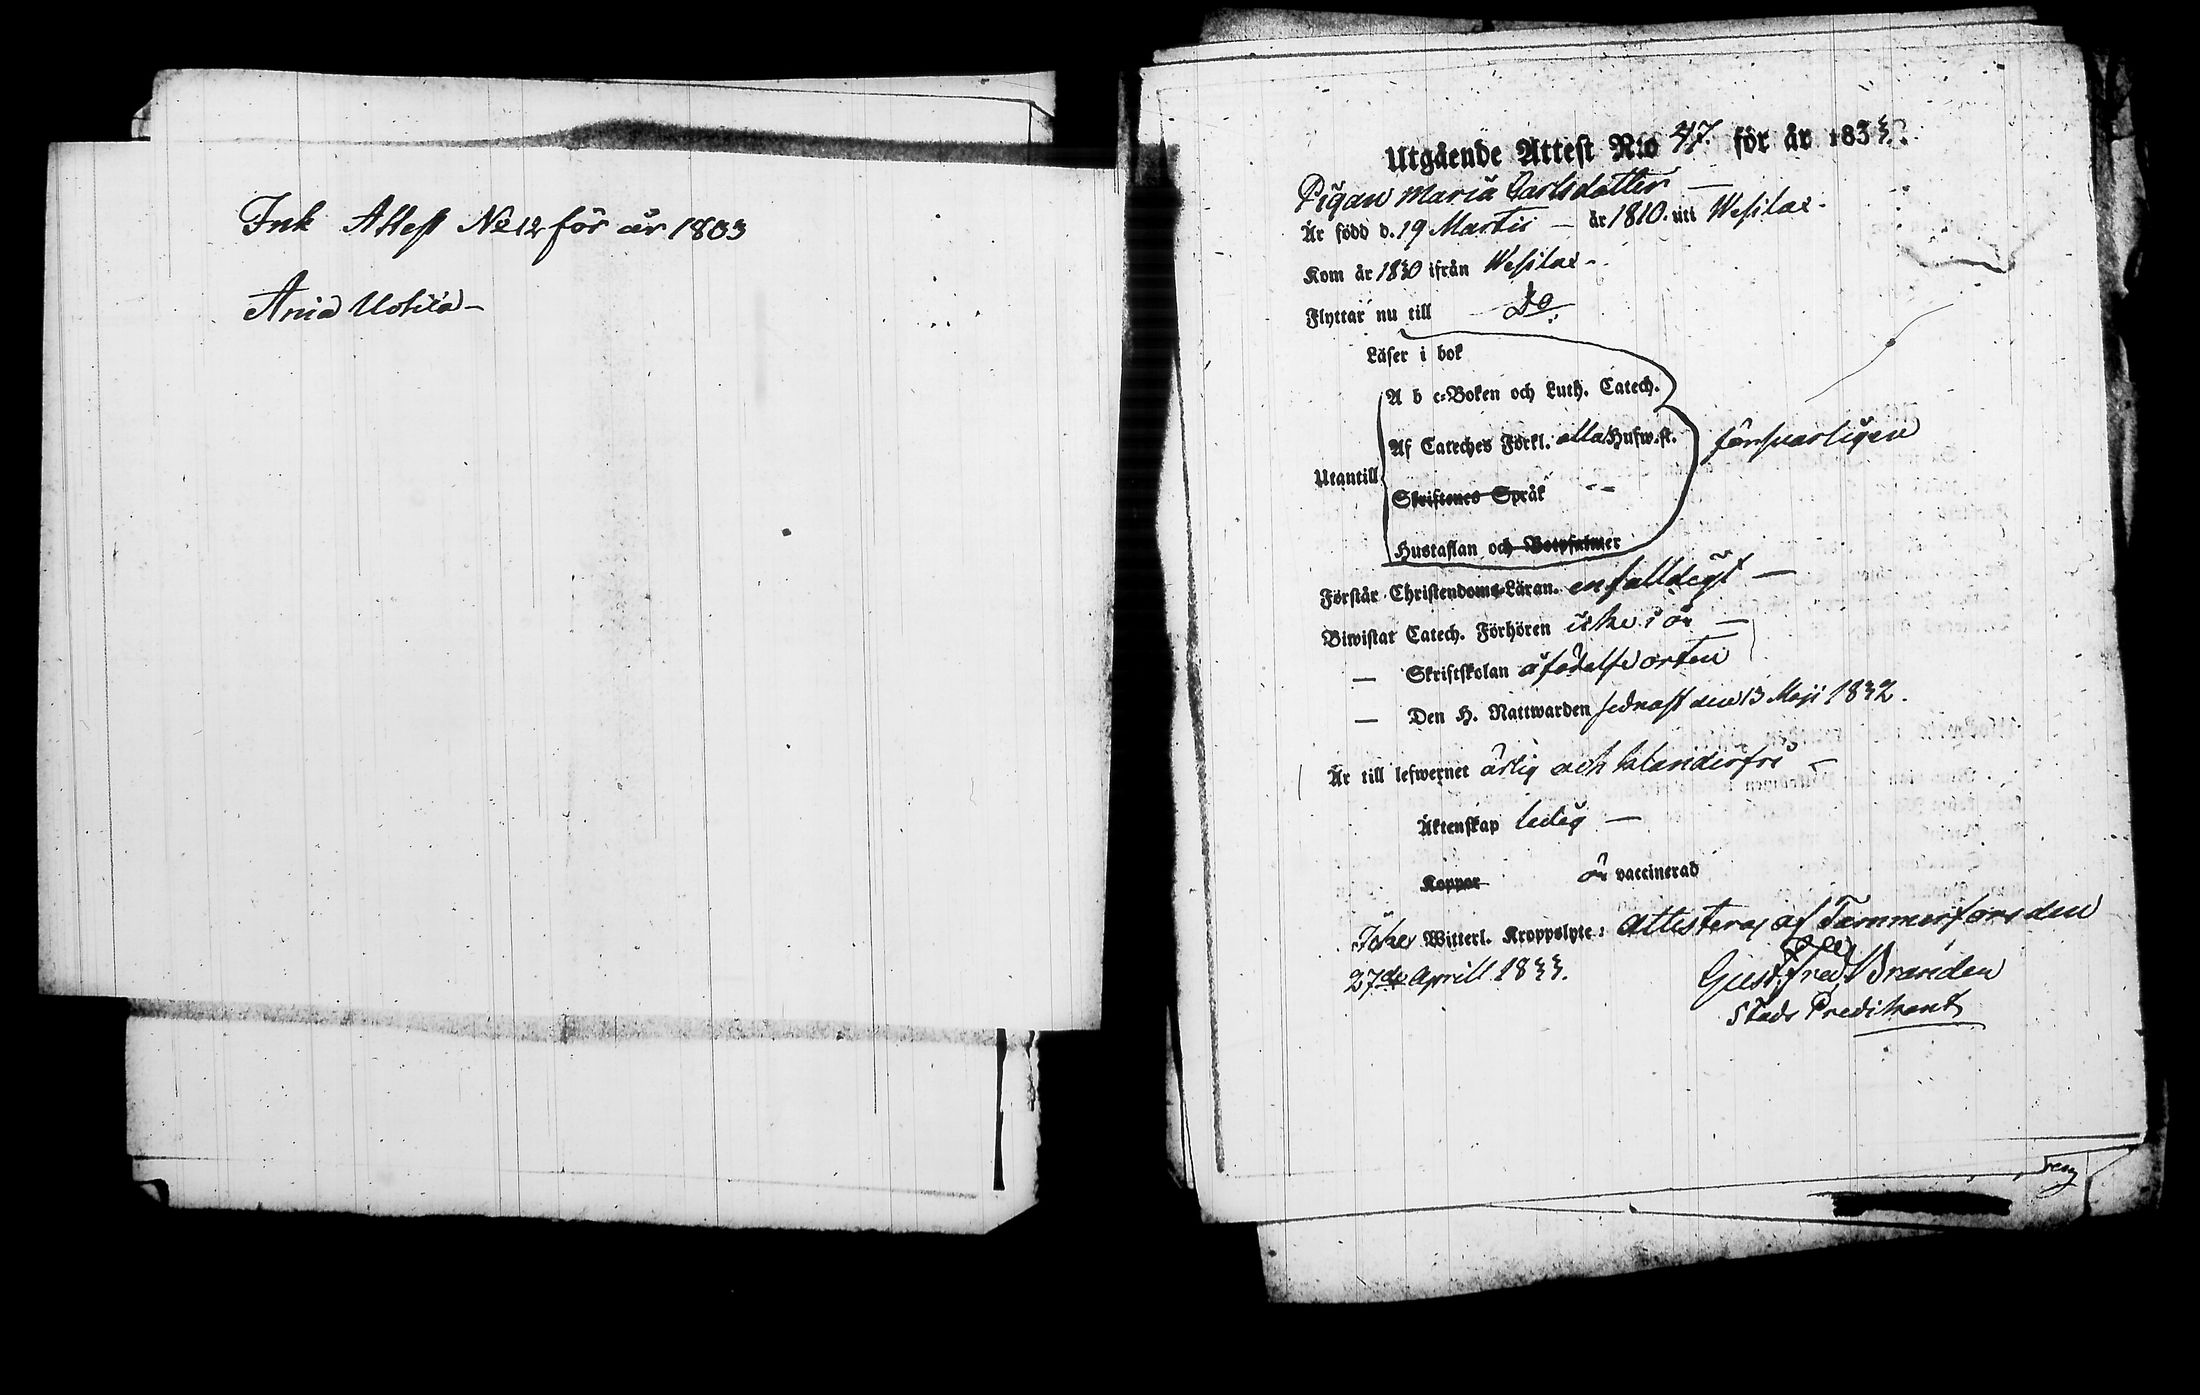 Ink Attest No 12 för år 1833
Ania Uotila –
Utgående Attest N:o 47. för år 1833.
Pigan Maria Carlsdotter —
Är född d. 19 Martii — år 1810. uti Wesilax.
Kom år 1830 ifrån Wesilax.
Flyttar nu till Do
Läser i bok
A b c-Boken och Luth. Catech.
Af Cateches Förkl. alla Hufw.st. försvarligen
Utantill
Skriftenes Språk
Hustaflan och Botpsalmer
Förstår Christendoms-Läran. enfalldigt —
Biwistat Catech. Förhören icke i år —
— Skriftskolan å födelse orten
— Den H. Nattwarden sednast den 13 Maji 1832.
Är till lefwernet ärlig och klanderfri —
Äktenskap ledig —
Koppor är vaccinerad
Icke Witterl. Kroppslyte: attesteras af Tammerfors den
27de Aprill 1833.
Gust. Fred. Branden
Stads Predikant